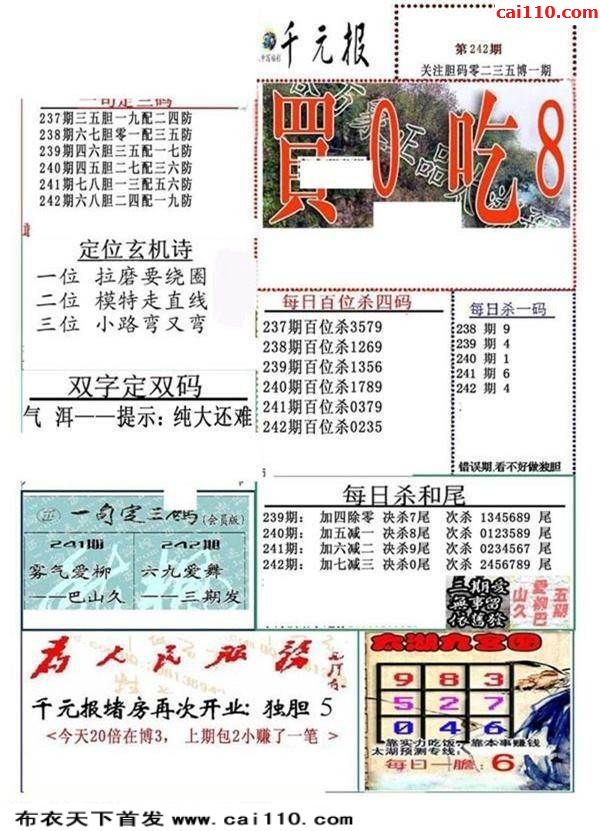 cai110.com
千元报
第242期
关注胆码零二三五博一期
一句定三码
237期三五胆一九配二四防
238期六七胆零一配三五防
239期四六胆三五配一七防
240期四五胆二七配三六防
241期七八胆一三配五六防
242期六八胆二四配一九防
買0吃8
定位玄机诗
一位 拉磨要绕圈
二位 模特走直线
三位 小路弯又弯
每日百位杀四码
237期百位杀3579
238期百位杀1269
239期百位杀1356
240期百位杀1789
241期百位杀0379
242期百位杀0235
每日杀一码
238 期 9
239 期 4
240 期 1
241 期 6
242 期 4
错误期.看不好做独胆
双字定双码
气 洱——提示：纯大还难
每日杀和尾
239期： 加四除零 决杀7尾 次杀 1345689 尾
240期： 加五减一 决杀8尾 次杀 0123589 尾
241期： 加六减二 决杀9尾 次杀 0234567 尾
242期： 加七减三 决杀0尾 次杀 2456789 尾
一句定三码(会員版)
241期 242期
雾气爱柳 六九爱舞
——巴山久 ——三期发
三期爱
五期
爱柳巴
山久
为人民服务
千元报堵房再次开业: 独胆 5
<今天20倍在博3， 上期包2小赚了一笔 >
太湖九宫图
9 8 3
5 2 7
0 4 6
靠实力吃饭，靠本事赚钱
太湖预测专线:
每日一膽: 6
布衣天下首发 www.cai110.com